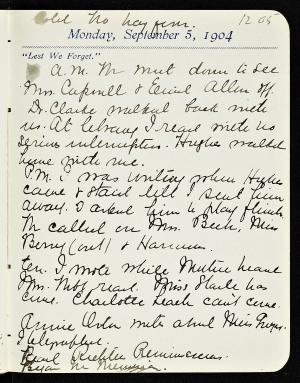 Cold. No hay fever. 12 05
Monday, September 5, 1904
"Lest We Forget."
A.M. M went down to see
Mrs. Capwell & Elliot Allen off.
Dr. Clarke walked back with
us. At library I read with no
serious interruption. Hughes walked
home with me.
P.M. I was writing when Hughes
came & staid till I sent him
away. I asked him to play flinch.
M called on Mrs. Beek, Miss
Berry (out) &
Ev. I wrote while Mother heard
Mrs. read. Miss has
come. Charlotte Leach can't come.
Annie wrote about Miss
Telegraphed.
Reminiscences.